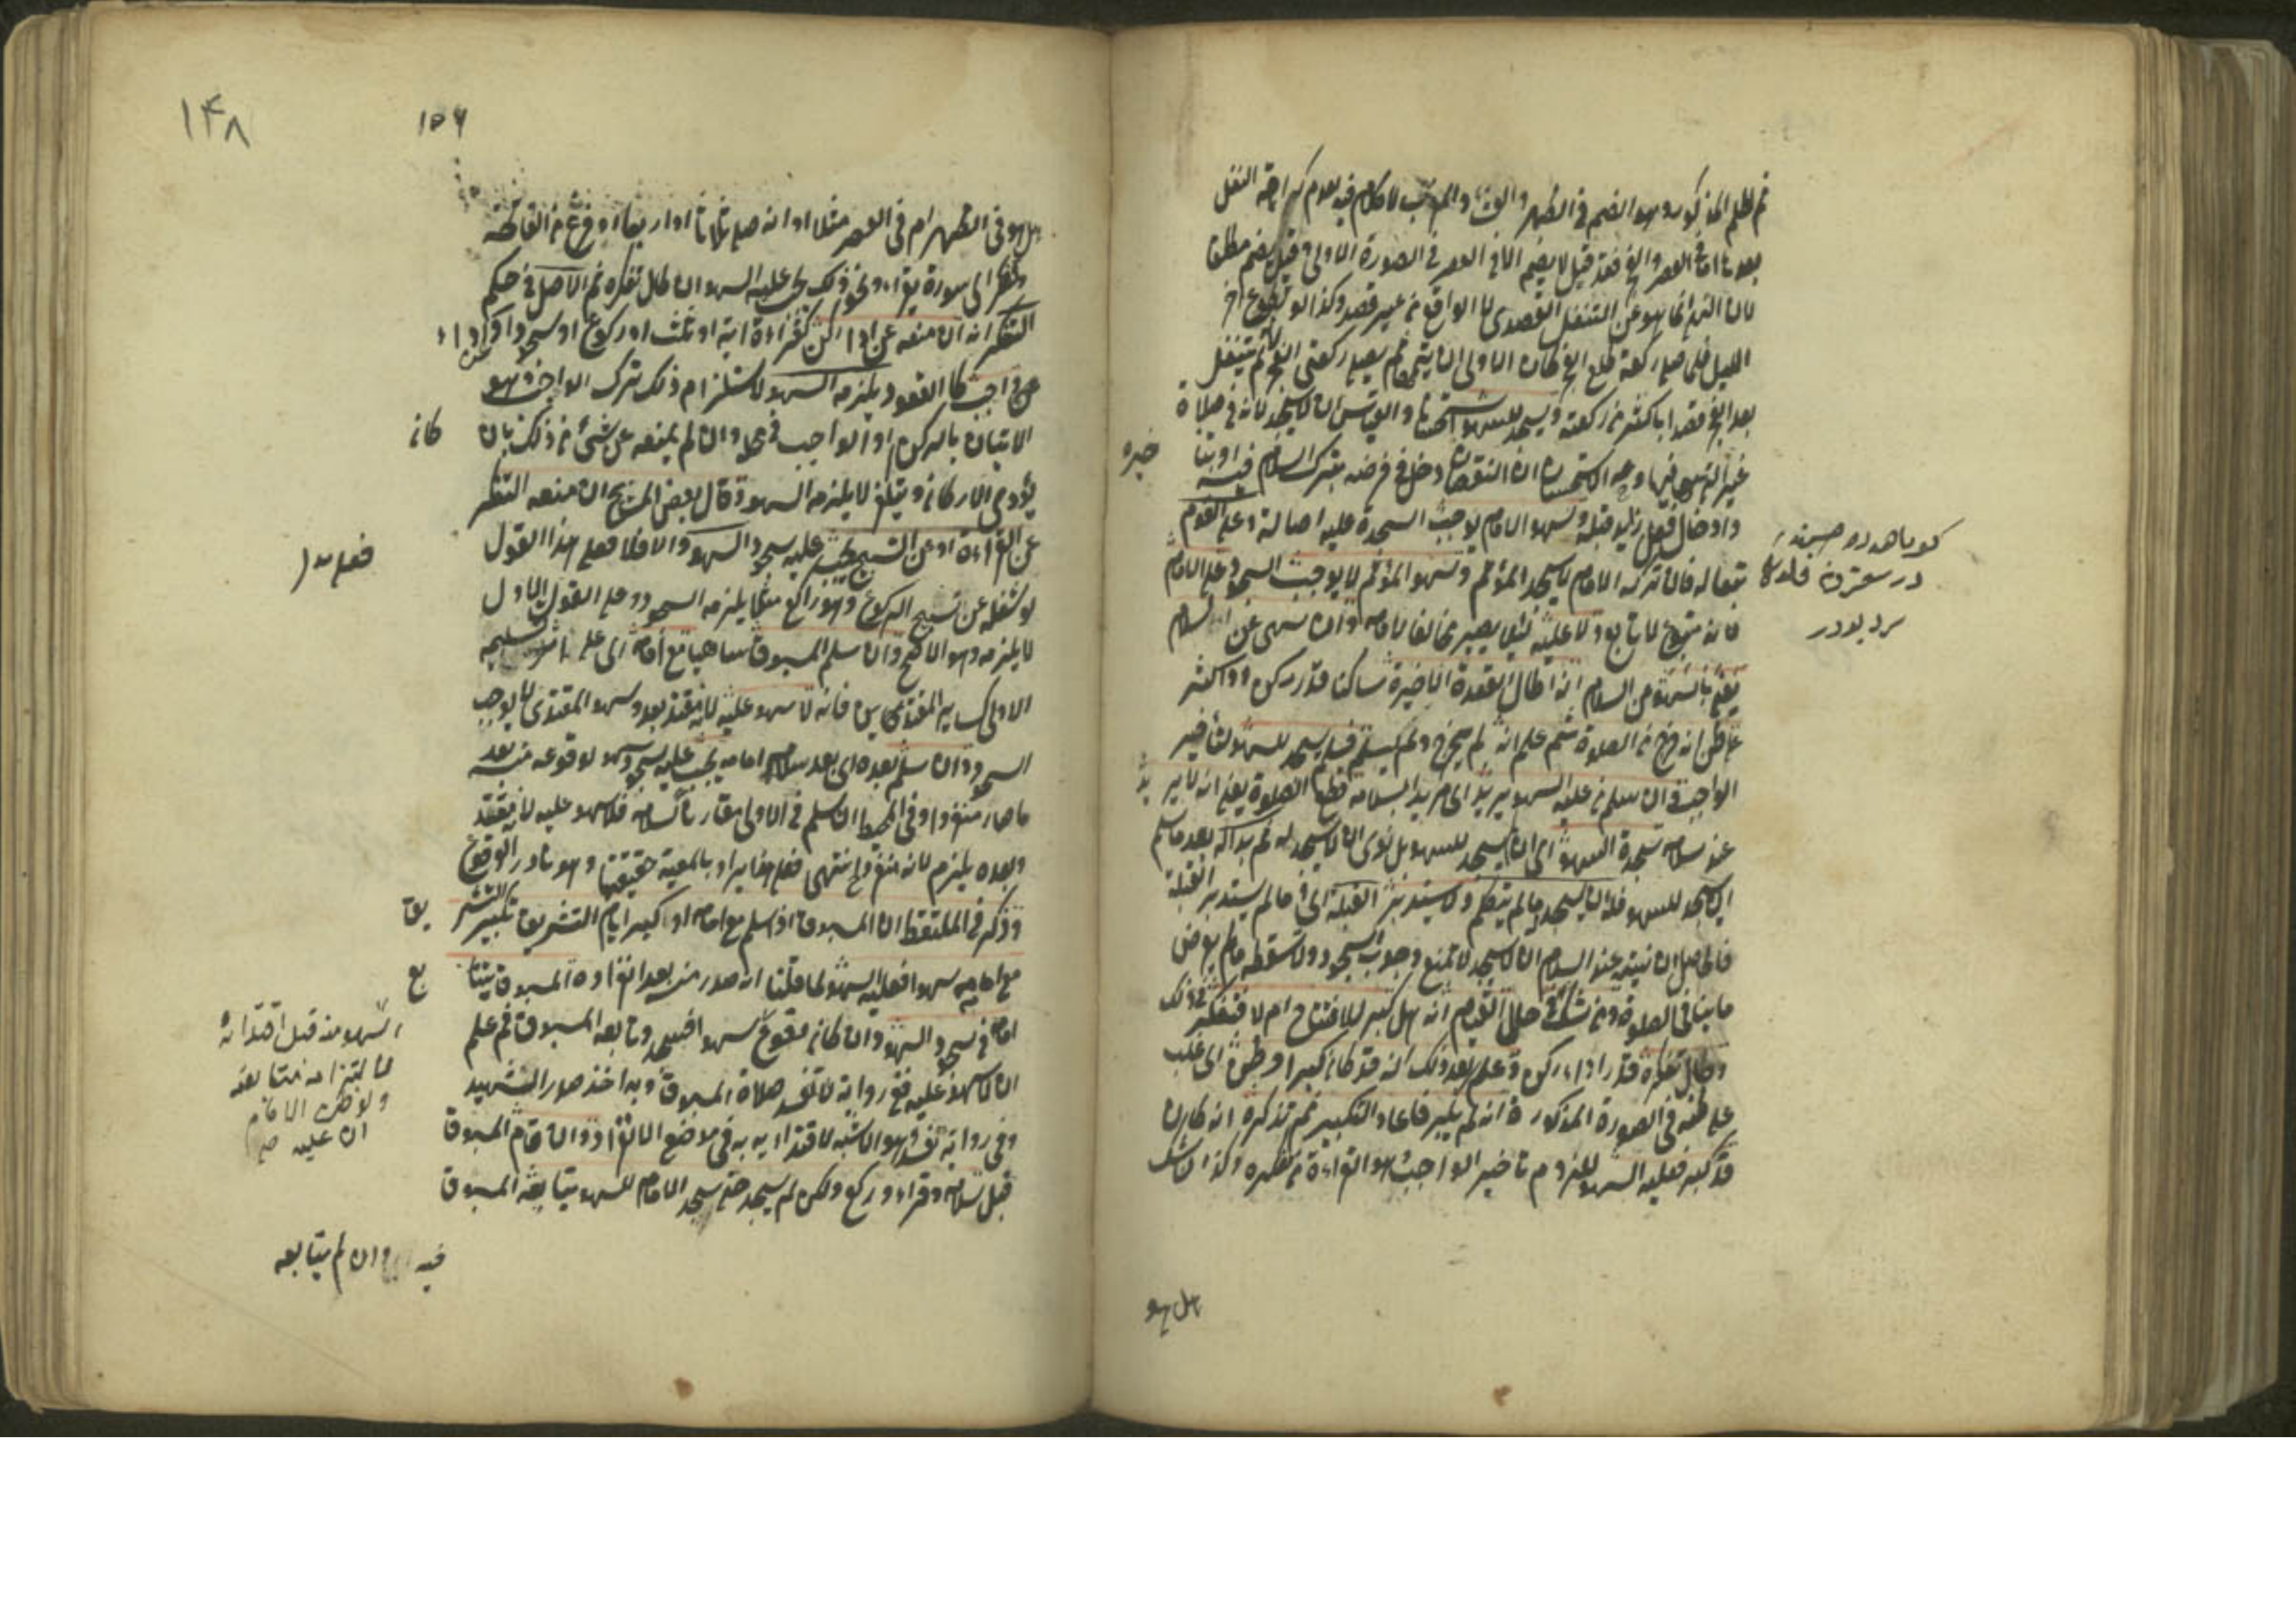 ثم الظم المذكور وهو الضم في الظهر والعشاء والمغرب لا كلام فيه لعدم كراهة النفل
بعدها اما في العصر والفجر فقد قيل لا يضم الا في العصر في الصورة الاولى وقيل يضم مطلقا
لان النهي انما هو عن التنفل القصدي لا الواقع من غير قصد وكذا لو تطوع اخر
الليل فلما صلى ركعة طلع الفجر كان الاولى ان يتمها ثم يصلي ركعتي الفجر لانه لم يتنفل
بعد الفجر قصدا باكثر من ركعته ويسجد للسهو استحسانا والقياس ان لا يسجد لانه في صلاة
غير التي سهى فيها وجه الاستحسان ان النقصان دخل في فرضه بترك السلام فيه او بتا
خيره
وادخال فعل زايد قبله وسهو الامام يوجب السجدة عليه اصالة وعلى القوم
تبعا له فان تركه الامام لا يسجد المؤتم وسهو المؤتم لا يوجب السجود على الامام
لانه متبوع لا تابع ولا عليه لئلا يصير مخالفا لامامه وان سهى عن السلام
يعني بالسهو عن السلام انه اطال القعدة الاخيرة ساكنا قدر ركن او اكثر
على ظن انه خرج من الصلوة ثم علم انه لم يخرج ولم يسلم فسلم يسجد للسهو لتأخير
الواجب وان سلم من عليه السهو يريد اي مريدا بسلامه قطع الصلوة يعني انه لا ير
يد
عند سلامه سجدة السهو اي ان يسجد للسهو بل نوى ان لا يسجد له ثم بدا له بعد ما سلم
ان يسجد للسهو فله ان يسجد ما لم يتكلم ولا يستدبر القبلة اي ما لم يستدبر القبلة
فالحاصل ان نيته عند السلام ان لا يسجد لا تمنع وجوب السجود ولا تسقطه ما لم يعرض
ما ينافي الصلوة ومن شك في حال القيام انه هل كبر للافتتاح ام لا فتفكر في ذلك
وطال تفكره قدر اداء ركن وعلم بعد ذلك انه قد كان كبر او ظن اي غلب
على ظنه في الصورة المذكورة انه لم يكبر فاعاد التكبير ثم تذكر انه كان
قد كبر فعليه السهو للزوم تأخير الواجب وهو القراءة بتفكره وكذا لو شك
هل هو
۱۴۸
۱۵۶
هل هو في الظهر ام في العصر مثلا او انه صلى ثلاثا او اربعا او فرغ من الفاتحة
وتفكر اي سورة يقراء ونحو ذلك يجب عليه السهو ان طال تفكره ثم الاصل في حكم
التفكر انه ان منعه عن اداء ركن كقراءة اية او ثلث او ركوع او سجود او عن اداء
واجب كالقعود يلزمه السهو لاستلزام ذلك ترك الواجب وهو
الاتيان بالركن او الواجب في محله وان لم يمنعه عن شئ من ذلك بان
كان
يؤدي الاركان ويتفكر لا يلزمه السهو وقال بعض المشايخ ان منعه التفكر
عن القراءة او عن التسبيح يجب عليه سجود السهو والا فلا فعلى هذا القول
فعلى هذا
لو شغله عن تسبيح الركوع وهو راكع مثلا يلزمه السجود وعلى القول الاول
لا يلزمه وهو الاصح وان سلم المسبوق ساهيا مع امامه اي على اثر تسليمه
الاولى كسائر المقتدين فانه لا سهو عليه لانه مقتد بعد وسهو المقتدي لا يوجب
السجود وان سلم بعده اي بعد سلام امامه يجب عليه سجود السهو لوقوعه منه بعد
ما صار منفردا وفي المحيط ان سلم في الاولى مقارنا لسلامه فلا سهو عليه لانه مقتد
وبعده يلزم لانه منفرد انتهى فعلى هذا يراد بالمعية حقيقتها وهو نادر الوقوع
وذكر في الملتقط ان المسبوق اذا سلم مع امامه او كبر ايام التشريق تكبير التشر
يق
مع امامه سهوا فعليه السهو لما قلنا انه صدر منه بعد انفراده المسبوق يتا
بع
امامه في سجود السهو وان كان وقوع
سهو منه قبل اقتدائه
لالتزامه متابعته
ان لا سهو عليه ففي رواية لا تفسد صلاة المسبوق وبه اخذ صدر الشهيد
وفي رواية تفسد وهو الاشبه لاقتدائه به في موضع الانفراد وان قام المسبوق
قبل سلامه وقراء وركع ولكن لم يسجد حتى سجد الامام للسهو يتابعه المسبوق
فيه وان لم يتابعه